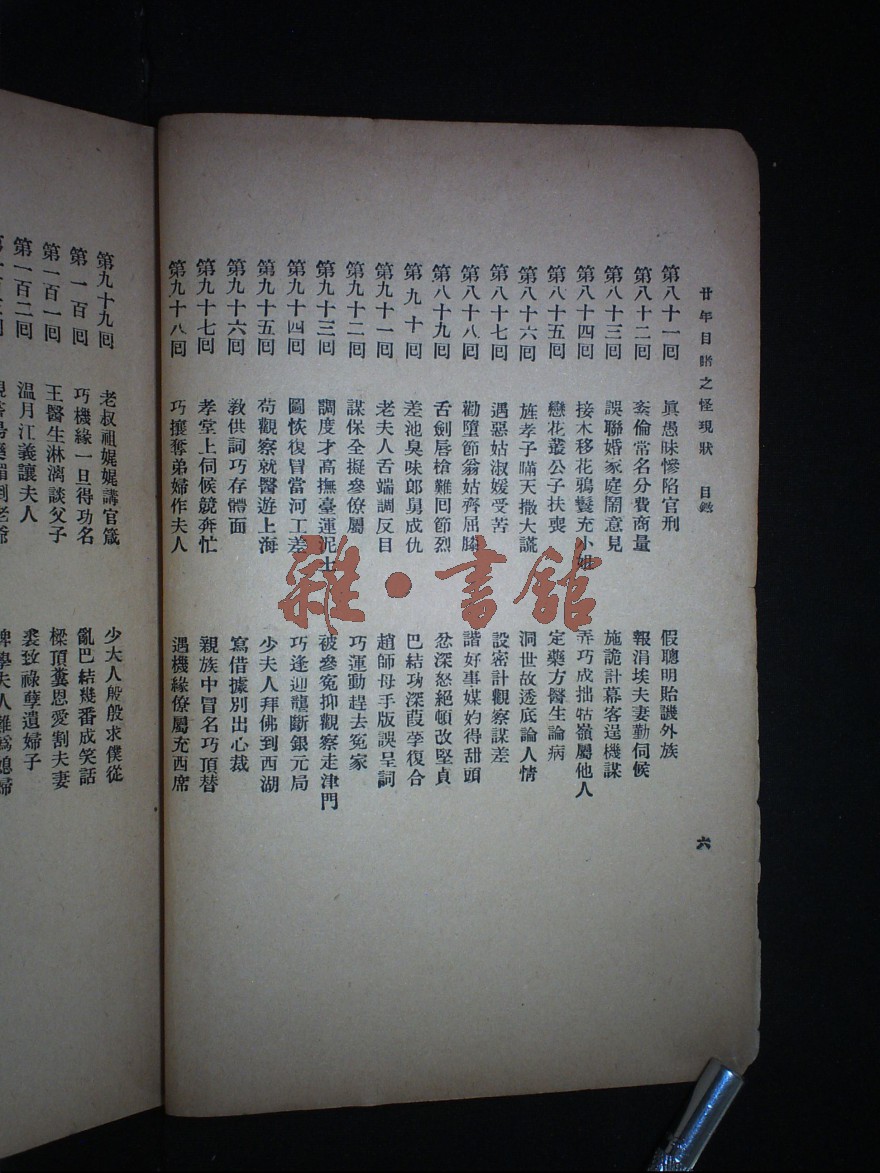 廿年目睹之怪現狀 目錄
第八十一囘 真愚昧慘陷官刑 假聰明貽譏外族
第八十二囘 紊倫常名分費商量 報涓埃夫妻勤伺候
第八十三囘 誤聯婚家庭鬧意見 施詭計幕客逞機謀
第八十四囘 接木移花鴉鬟充小姐 弄巧成拙牯嶺屬他人
第八十五囘 戀花叢公子扶喪 定藥方醫生論病
第八十六囘 旌孝子瞞天撒大謊 洞世故透底論人情
第八十七囘 遇惡姑淑媛受苦 設密計觀察謀差
第八十八囘 勸墮節翁姑齊屈膝 諧好事媒妁得甜頭
第八十九囘 舌劍唇槍難囘節烈 忿深怒絕頓改堅貞
第九十囘 差池臭味郎舅成仇 巴結功深葭莩復合
第九十一囘 老夫人舌端調反目 趙師母手版誤呈詞
第九十二囘 謀保全擬參僚屬 巧運動趕去冤家
第九十三囘 調度才高撫臺運泥土 被參冤抑觀察走津門
第九十四囘 圖恢復冒當河工差 巧逢迎壟斷銀元局
第九十五囘 苟觀察就醫遊上海 少夫人拜佛到西湖
第九十六囘 敎供詞巧存體面 寫借據別出心裁
第九十七囘 孝堂上伺候競奔忙 親族中冒名巧頂替
第九十八囘 巧攘奪弟婦作夫人 遇機緣僚屬充西席
六
雜·書館
第九十九囘 老叔祖娓娓講官箴 少大人殷殷求僕從
第一百囘 巧機緣一旦得功名 亂巴結幾番成笑話
第一百一囘 王醫生淋漓談父子 樑頂糞恩愛割夫妻
第一百二囘 温月江義讓夫人 裘致祿孽遺婦子